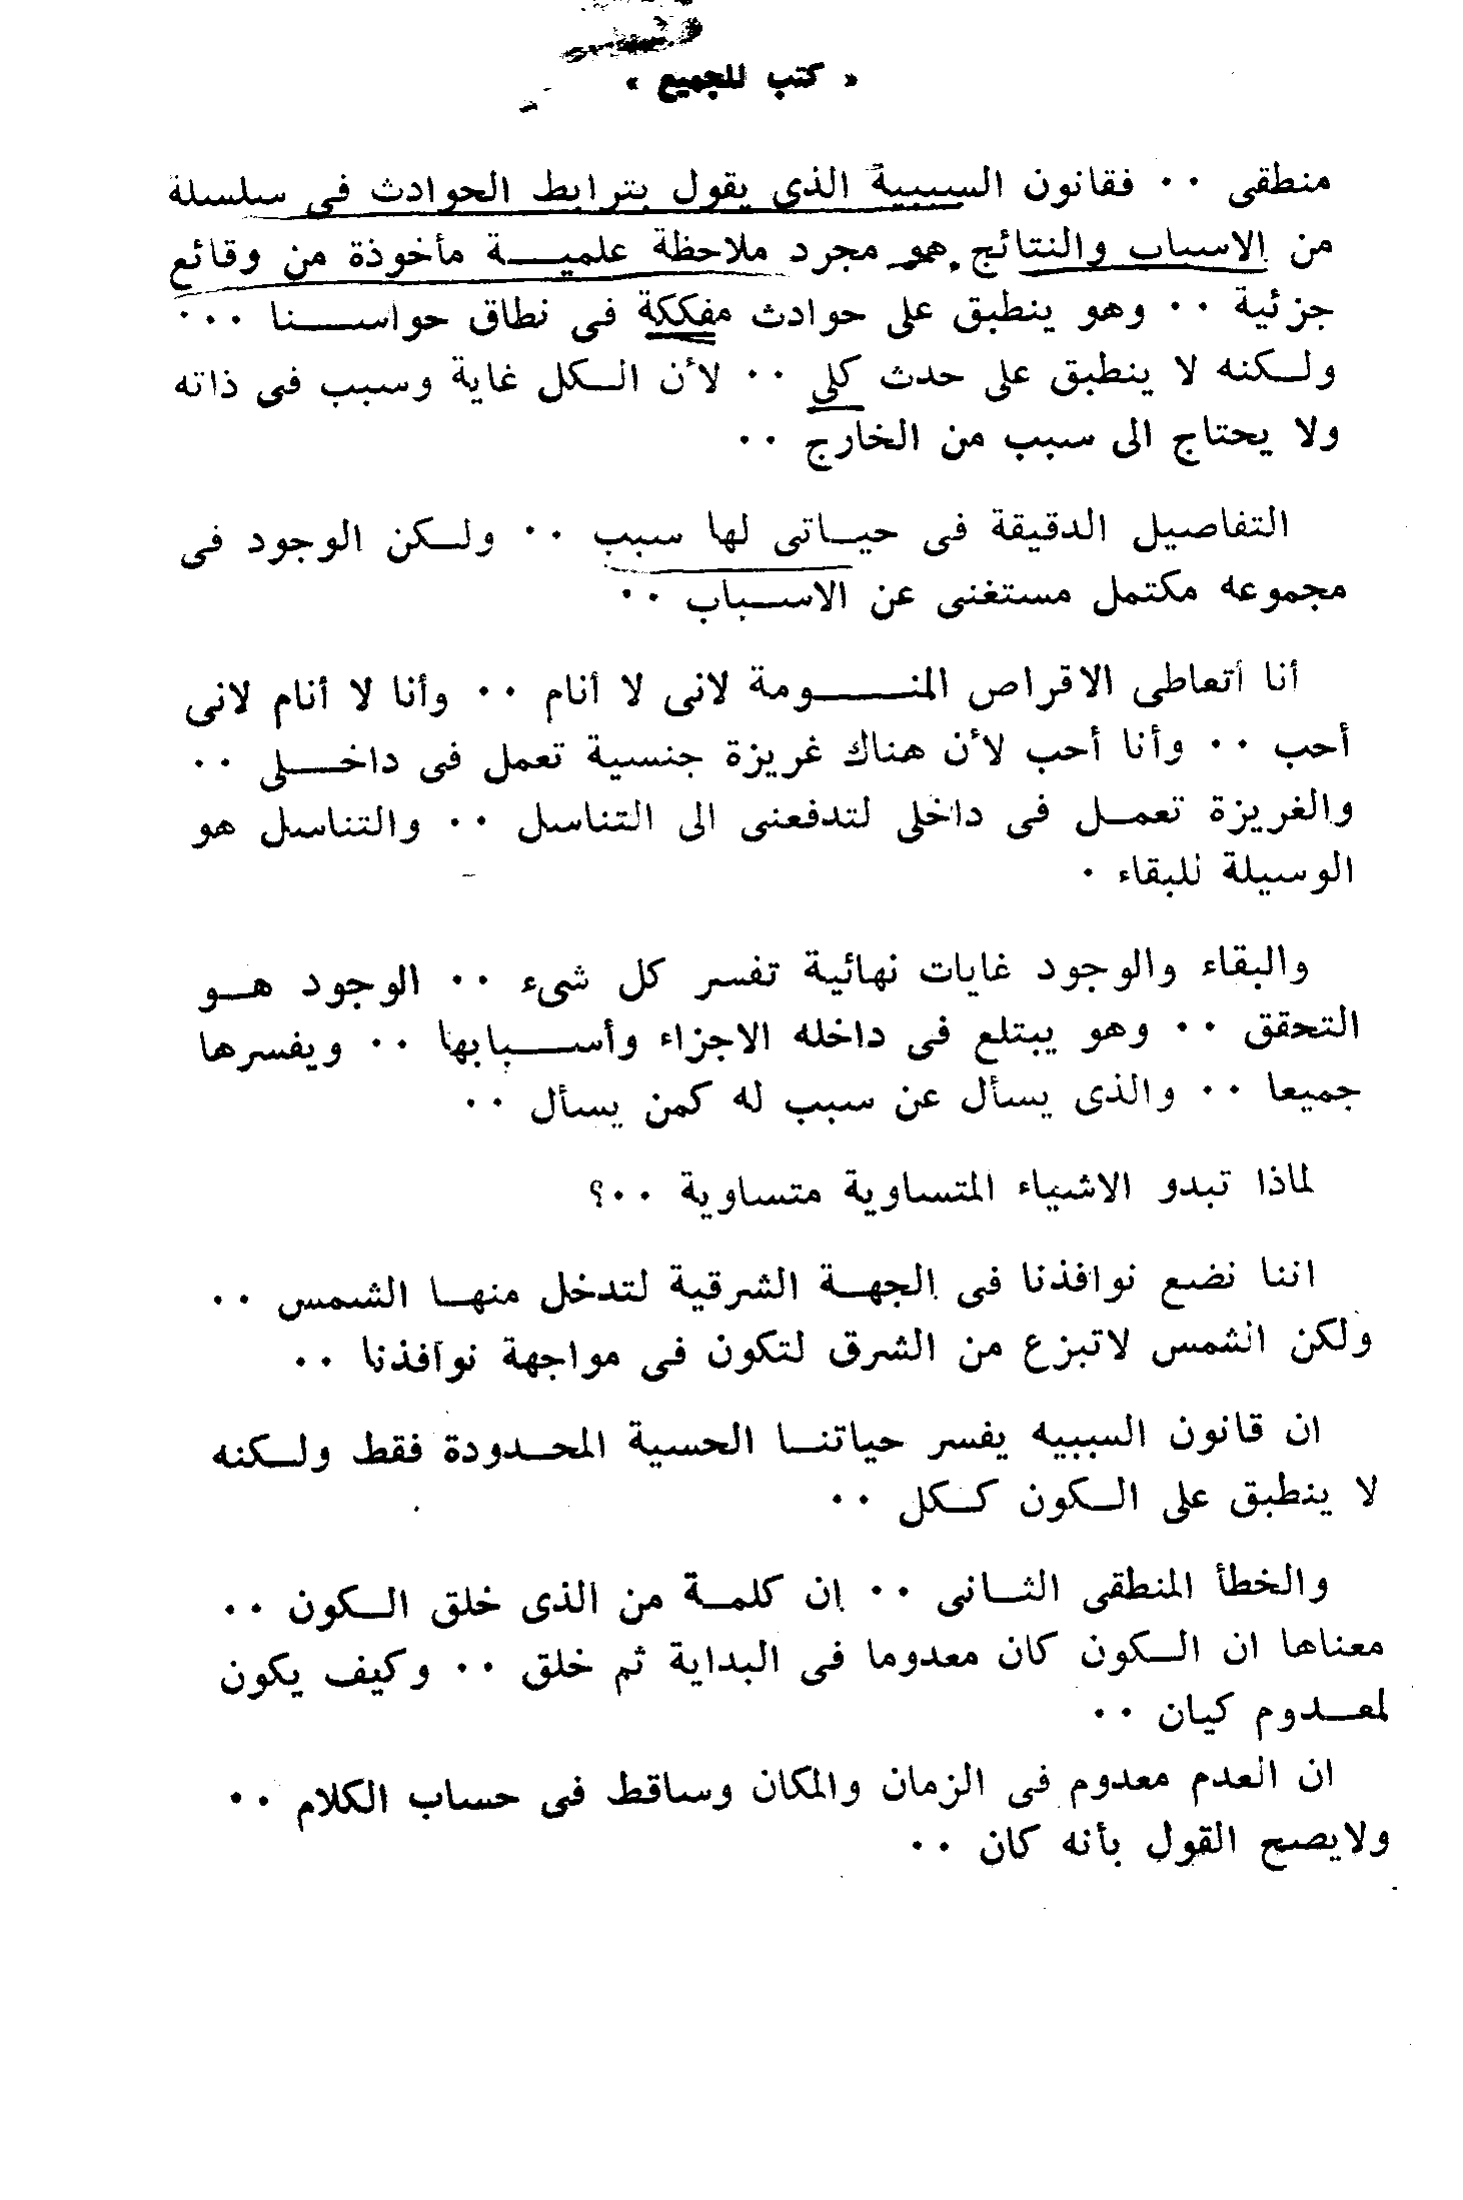 « كتب للجميع »
منطقى ٠٠ فقانون السببية الذى يقول بترابط الحوادث فى سلسلة
من الاسباب والنتائج هو مجرد ملاحظة علميـــة مأخوذة من وقائع
جزئية ٠٠ وهو ينطبق على حوادث مفككة فى نطاق حواســـنا ٠٠٠
ولـكنه لا ينطبق على حدث كلى ٠٠ لأن الـكل غاية وسبب فى ذاته
ولا يحتاج الى سبب من الخارج ٠٠
التفاصيل الدقيقة فى حيـاتى لها سبب ٠٠ ولـكن الوجود فى
مجموعه مكتمل مستغنى عن الاسـباب ٠٠
أنا أتعاطى الاقراص المنــــومة لانى لا أنام ٠٠ وأنا لا أنام لانى
أحب ٠٠ وأنا أحب لأن هناك غريزة جنسية تعمل فى داخــلى ٠٠
والغريزة تعمـل فى داخلى لتدفعنى الى التناسل ٠٠ والتناسل هو
الوسيلة للبقاء ٠
والبقاء والوجود غايات نهائية تفسر كل شىء ٠٠ الوجود هـو
التحقق ٠٠ وهو يبتلع فى داخله الاجزاء وأســبابها ٠٠ ويفسرها
جميعا ٠٠ والذى يسأل عن سبب له كمن يسأل ٠٠
لماذا تبدو الاشياء المتساوية متساوية ٠٠؟
اننا نضع نوافذنا فى الجهـة الشرقية لتدخل منهـا الشمس ٠٠
ولكن الشمس لاتبزع من الشرق لتكون فى مواجهة نوافذنا ٠٠
ان قانون السببيه يفسر حياتنـا الحسية المحـدودة فقط ولـكنه
لا ينطبق على الـكون كـكل ٠٠
والخطأ المنطقى الثـانى ٠٠ إن كلمـة من الذى خلق الـكون ٠٠
معناها ان الـكون كان معدوما فى البداية ثم خلق ٠٠ وكيف يكون
لمعـدوم كيان ٠٠
ان العدم معدوم فى الزمان والمكان وساقط فى حساب الكلام ٠٠
ولايصح القول بأنه كان ٠٠